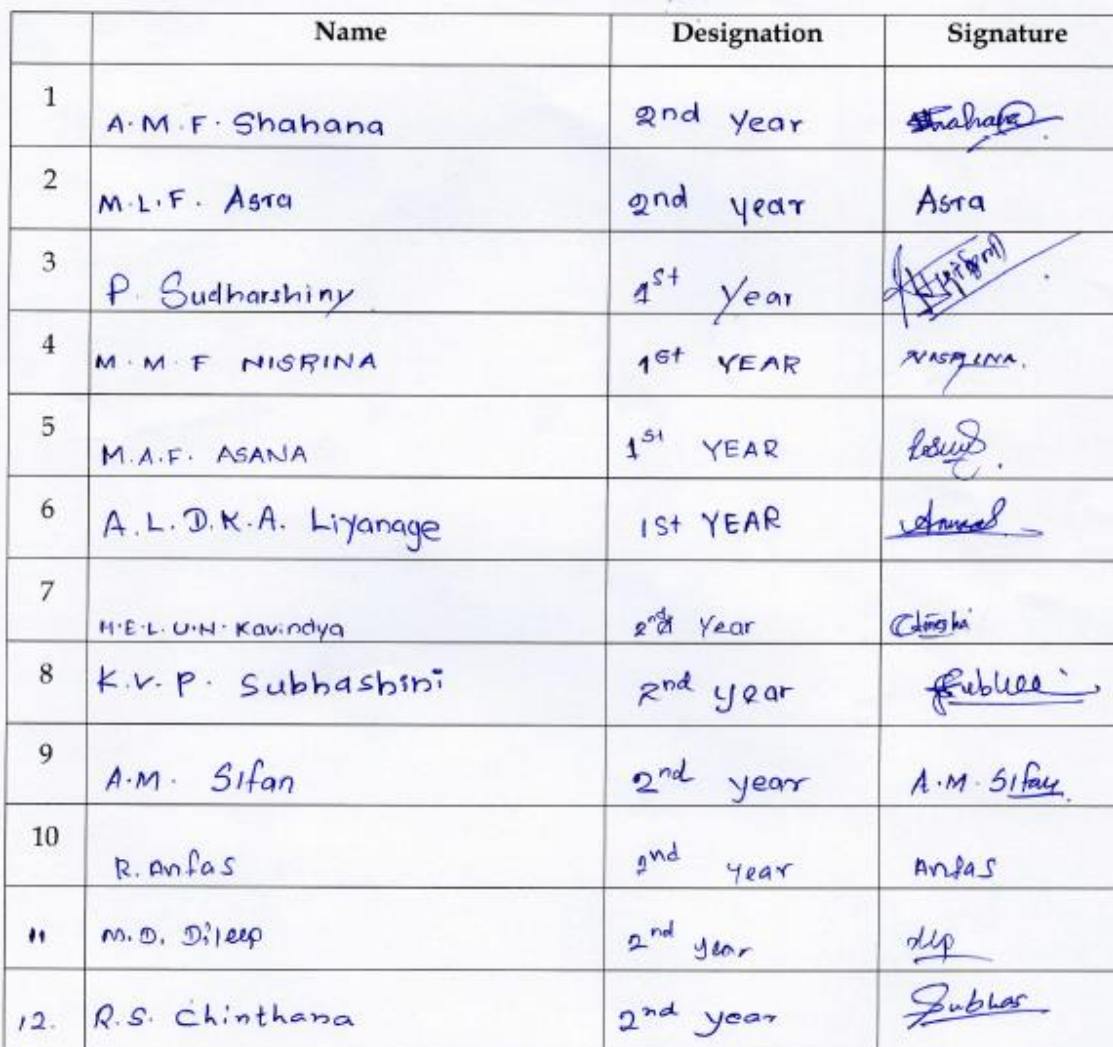 Name Designation Signature
1 A.M.F. Shahana 2nd Year Shahana
2 M.L.F. Asra 2nd year Asra
3 P. Sudharshiny 1st Year
4 M.M.F NISRINA 1st YEAR
5 M.A.F. ASANA 1st YEAR
6 A.L.D.K.A. Liyanage 1st YEAR
7 H.E.L.U.N. Kavindya 2nd Year
8 K.V.P. Subhashini 2nd year
9 A.M. Sifan 2nd year A.M. Sifan
10 R. Anfas 2nd year Anfas
11 M.D. Dileep 2nd year
12. R.S. Chinthana 2nd year